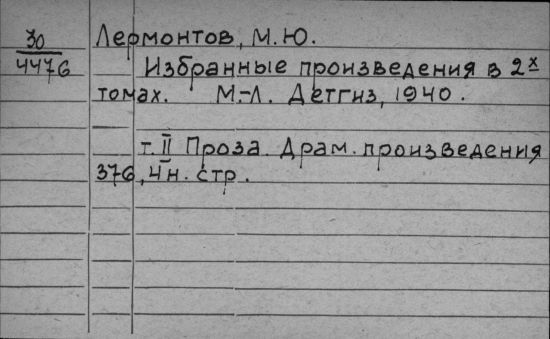 30
4476
Лермонтов, М.Ю.
Избранные произведения в 2х
томах. М.-Л. Детгиз, 1940.
т. II Проза. Драм. произведения
376, 4 н. стр.